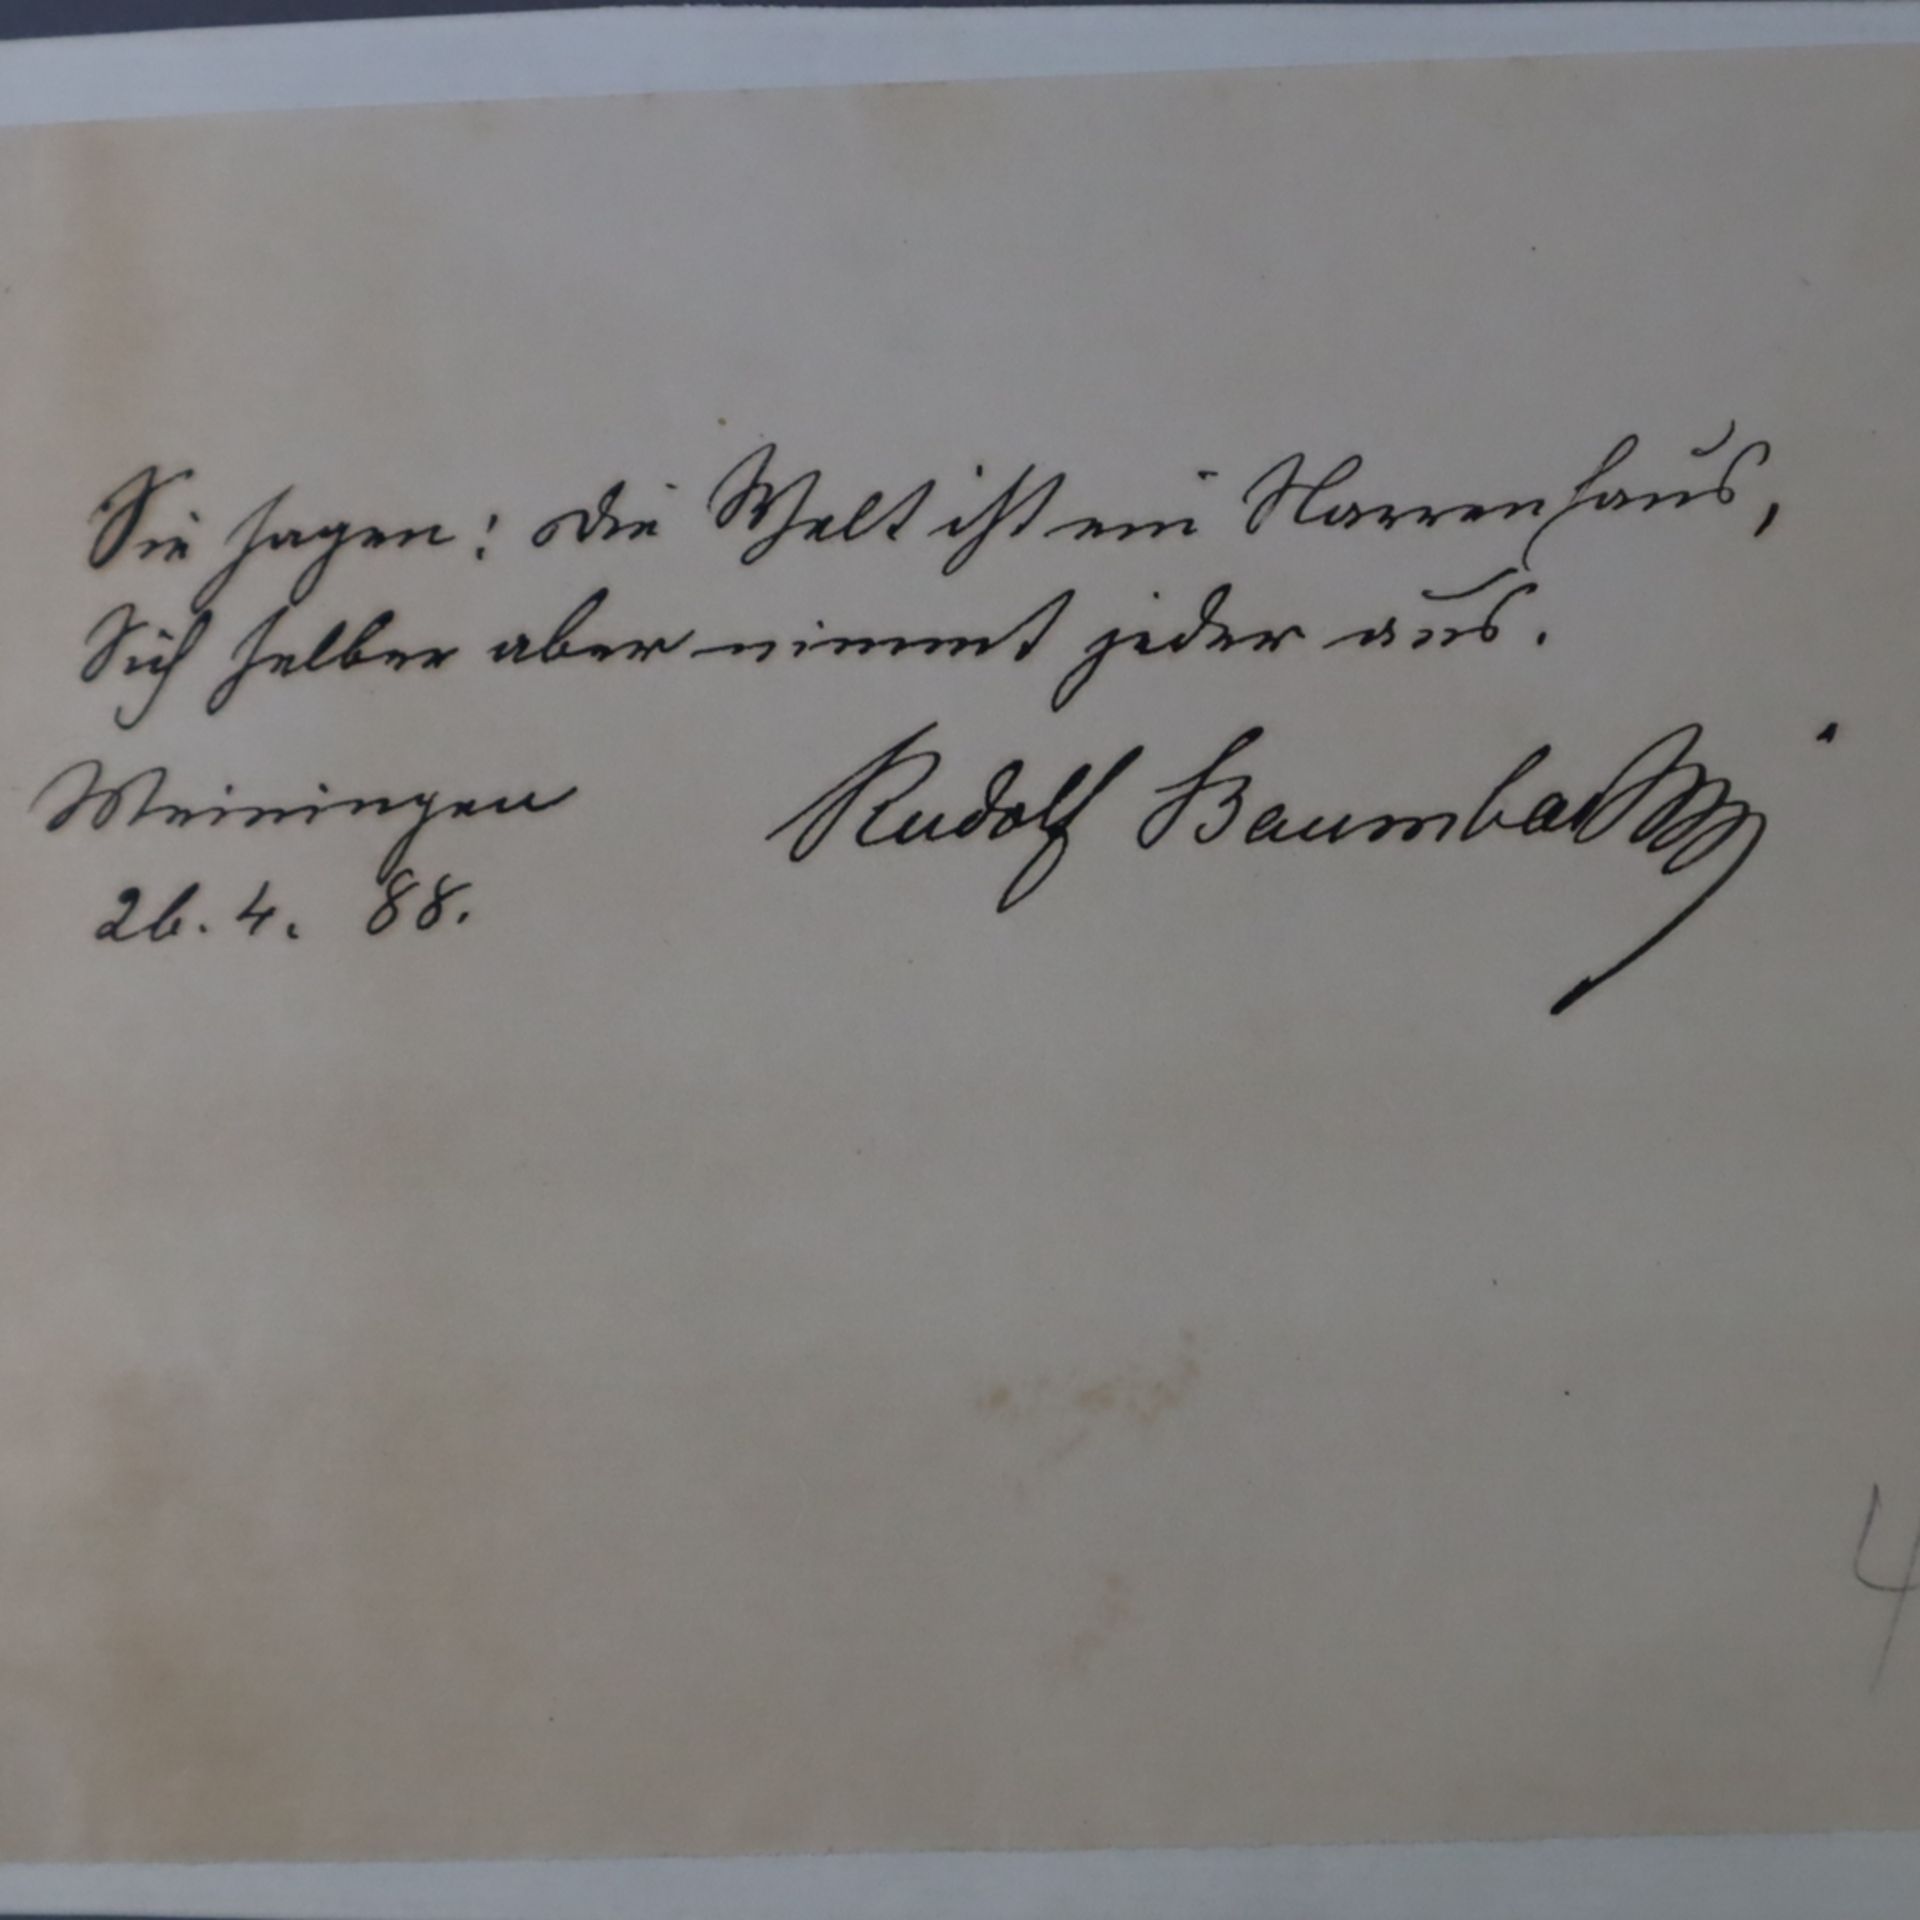 Sie sagen: die Welt ist ein Narrenhaus,
Sich selber aber nimmt jeder aus.
Meiningen Rudolf Baumbach
26. 4. 88.
4